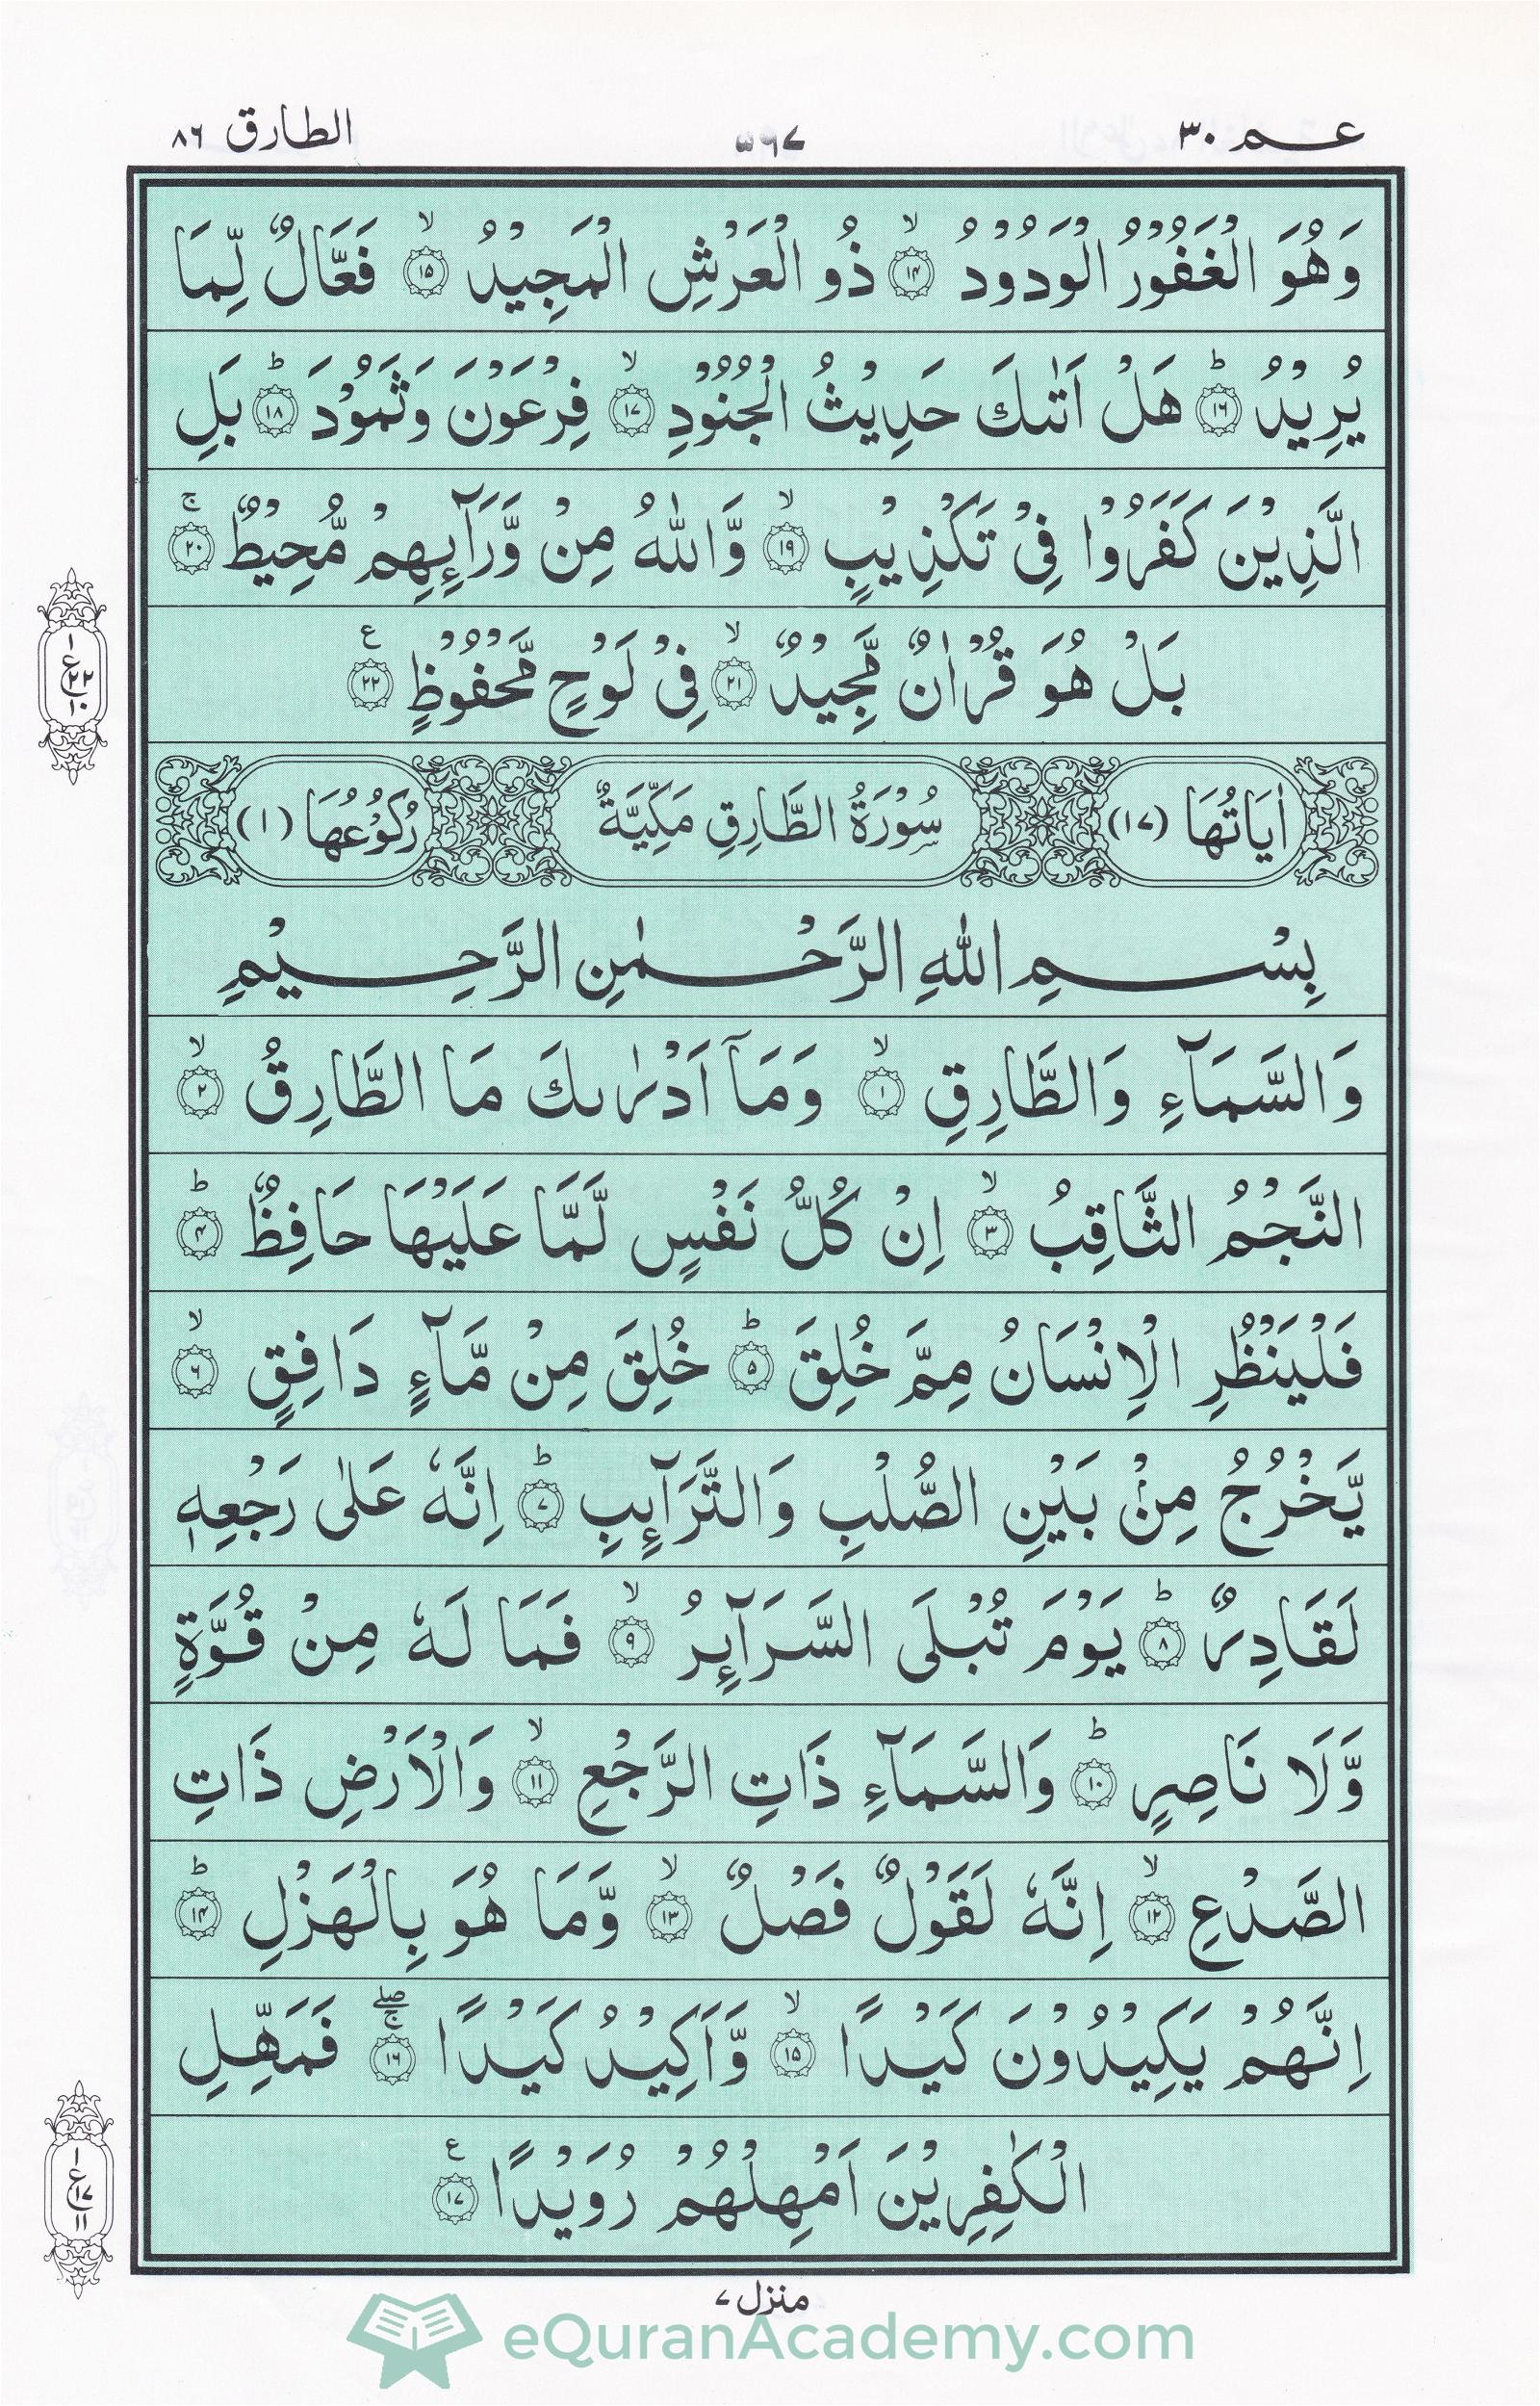 عـــم ٣٠ ٥٦٧ الطارق ٨٦
وَهُوَ الْغَفُوْرُ الْوَدُوْدُ ۙ﴿١۴﴾ ذُو الْعَرْشِ الْمَجِيْدُ ۙ﴿١٥﴾ فَعَّالٌ لِّمَا
يُرِيْدُ ؕ﴿١٦﴾ هَلْ اَتٰىكَ حَدِيْثُ الْجُنُوْدِ ۙ﴿١٧﴾ فِرْعَوْنَ وَثَمُوْدَ ؕ﴿١٨﴾ بَلِ
الَّذِيْنَ كَفَرُوْا فِىْ تَكْذِيْبٍ ۙ﴿١٩﴾ وَّاللّٰهُ مِنْ وَّرَآئِهِمْ مُّحِيْطٌ ۚ﴿٢٠﴾
بَلْ هُوَ قُرْاٰنٌ مَّجِيْدٌ ۙ﴿٢١﴾ فِىْ لَوْحٍ مَّحْفُوْظٍ ﴿٢٢﴾ ع
١ ع ٢٢ ١٠
اٰيَاتُهَا (١٧) سُوْرَةُ الطَّارِقِ مَكِّيَّةٌ رُكُوْعُهَا (١)
بِسْمِ اللّٰهِ الرَّحْمٰنِ الرَّحِيْمِ
وَالسَّمَآءِ وَالطَّارِقِ ۙ﴿١﴾ وَمَآ اَدْرٰىكَ مَا الطَّارِقُ ۙ﴿٢﴾
النَّجْمُ الثَّاقِبُ ۙ﴿٣﴾ اِنْ كُلُّ نَفْسٍ لَّمَّا عَلَيْهَا حَافِظٌ ؕ﴿۴﴾
فَلْيَنْظُرِ الْاِنْسَانُ مِمَّ خُلِقَ ؕ﴿٥﴾ خُلِقَ مِنْ مَّآءٍ دَافِقٍ ۙ﴿٦﴾
يَّخْرُجُ مِنْۢ بَيْنِ الصُّلْبِ وَالتَّرَآئِبِ ؕ﴿٧﴾ اِنَّهٗ عَلٰى رَجْعِهٖ
لَقَادِرٌ ؕ﴿٨﴾ يَوْمَ تُبْلَى السَّرَآئِرُ ۙ﴿٩﴾ فَمَا لَهٗ مِنْ قُوَّةٍ
وَّلَا نَاصِرٍ ؕ﴿١٠﴾ وَالسَّمَآءِ ذَاتِ الرَّجْعِ ۙ﴿١١﴾ وَالْاَرْضِ ذَاتِ
الصَّدْعِ ۙ﴿١٢﴾ اِنَّهٗ لَقَوْلٌ فَصْلٌ ۙ﴿١٣﴾ وَّمَا هُوَ بِالْهَزْلِ ؕ﴿١۴﴾
اِنَّهُمْ يَكِيْدُوْنَ كَيْدًا ۙ﴿١٥﴾ وَّاَكِيْدُ كَيْدًا ۖۚ﴿١٦﴾ فَمَهِّلِ
الْكٰفِرِيْنَ اَمْهِلْهُمْ رُوَيْدًا ﴿١٧﴾ ع
١ ع ١٧ ١١
منزل ٧
eQuranAcademy.com